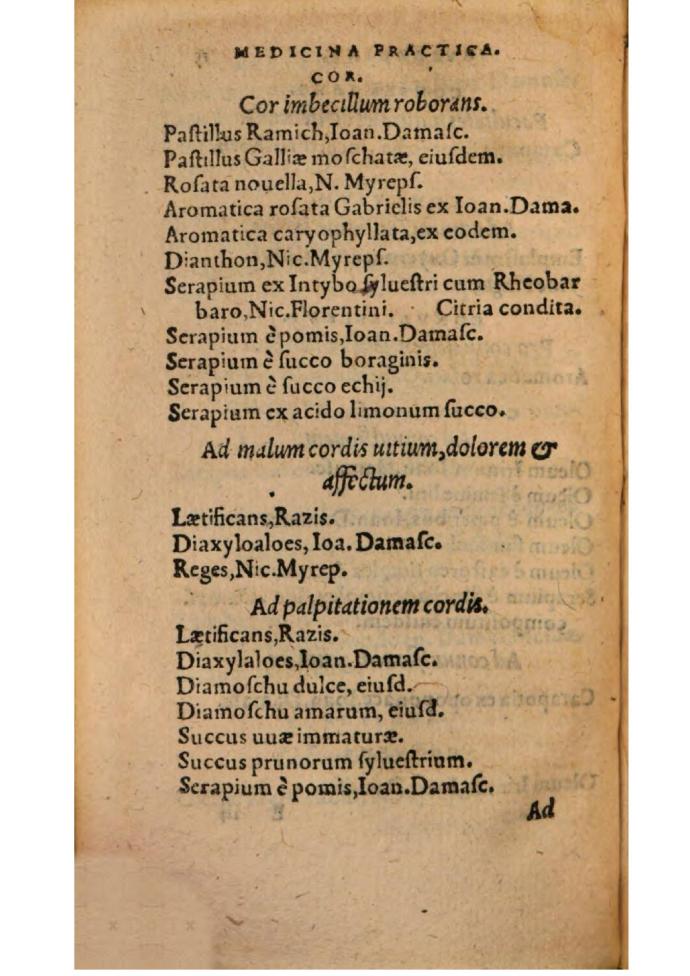 MEDICINA PRACTICA.
COR.
Cor imbecillum roborans.
Paſtillus Ramich,Ioan.Damaſc.
Paſtillus Galliæ moſchatæ, eiuſdem.
Roſata nouella,N. Myrepſ.
Aromatica roſata Gabrielis ex Ioan.Dama.
Aromatica caryophyllata,ex eodem.
Dianthon,Nic.Myrepſ.
Serapium ex Intybo ſylueſtri cum Rheobar
baro,Nic.Florentini. Citria condita.
Serapium è pomis,Ioan.Damaſc.
Serapium è ſucco boraginis.
Serapium è ſucco echij.
Serapium ex acido limonum ſucco.
Ad malum cordis uitium,dolorem &
affectum.
Lætificans,Razis.
Diaxyloaloes, Ioa. Damaſc.
Reges,Nic.Myrep.
Ad palpitationem cordis.
Lætificans,Razis.
Diaxylaloes,Ioan.Damaſc.
Diamoſchu dulce, eiuſd.
Diamoſchu amarum, eiuſd.
Succus uuæ immaturæ.
Succus prunorum ſylueſtrium.
Serapium è pomis,Ioan.Damaſc.
Ad